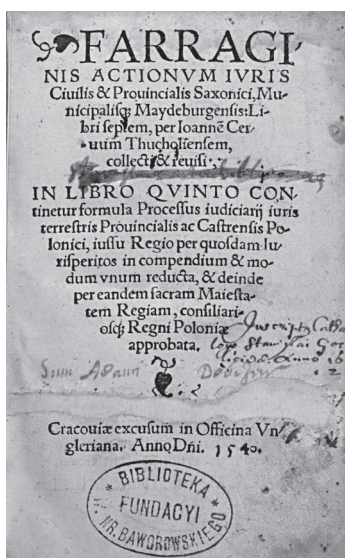 FARRAGI-
NIS ACTIONVM IVRIS
Ciuilis & Prouincialis Saxonici, Mu-
nicipalisq; Maydeburgensis: Li-
bri septem, per Ioannē Cer-
uum Thucholiensem,
collecti & reuisi.
IN LIBRO QVINTO CON-
tinetur formula Processus iudiciarij iuris
terrestris Prouincialis ac Castrensis Po-
lonici, iussu Regio per quosdam Iu-
risperitos in compendium & mo-
dum vnum reducta, & deinde
per eandem sacram Maiesta-
tem Regiam, consiliari-
osq; Regni Poloniæ
approbata.
Inscript9 Catha
logo Stanislai
Anno 16
Sum Adami
Cracouiæ excusum in Officina Vn-
gleriana. Anno Dñi. 1540.
BIBLIOTEKA
FUNDACYI
HR. BAWOROWSKIEGO